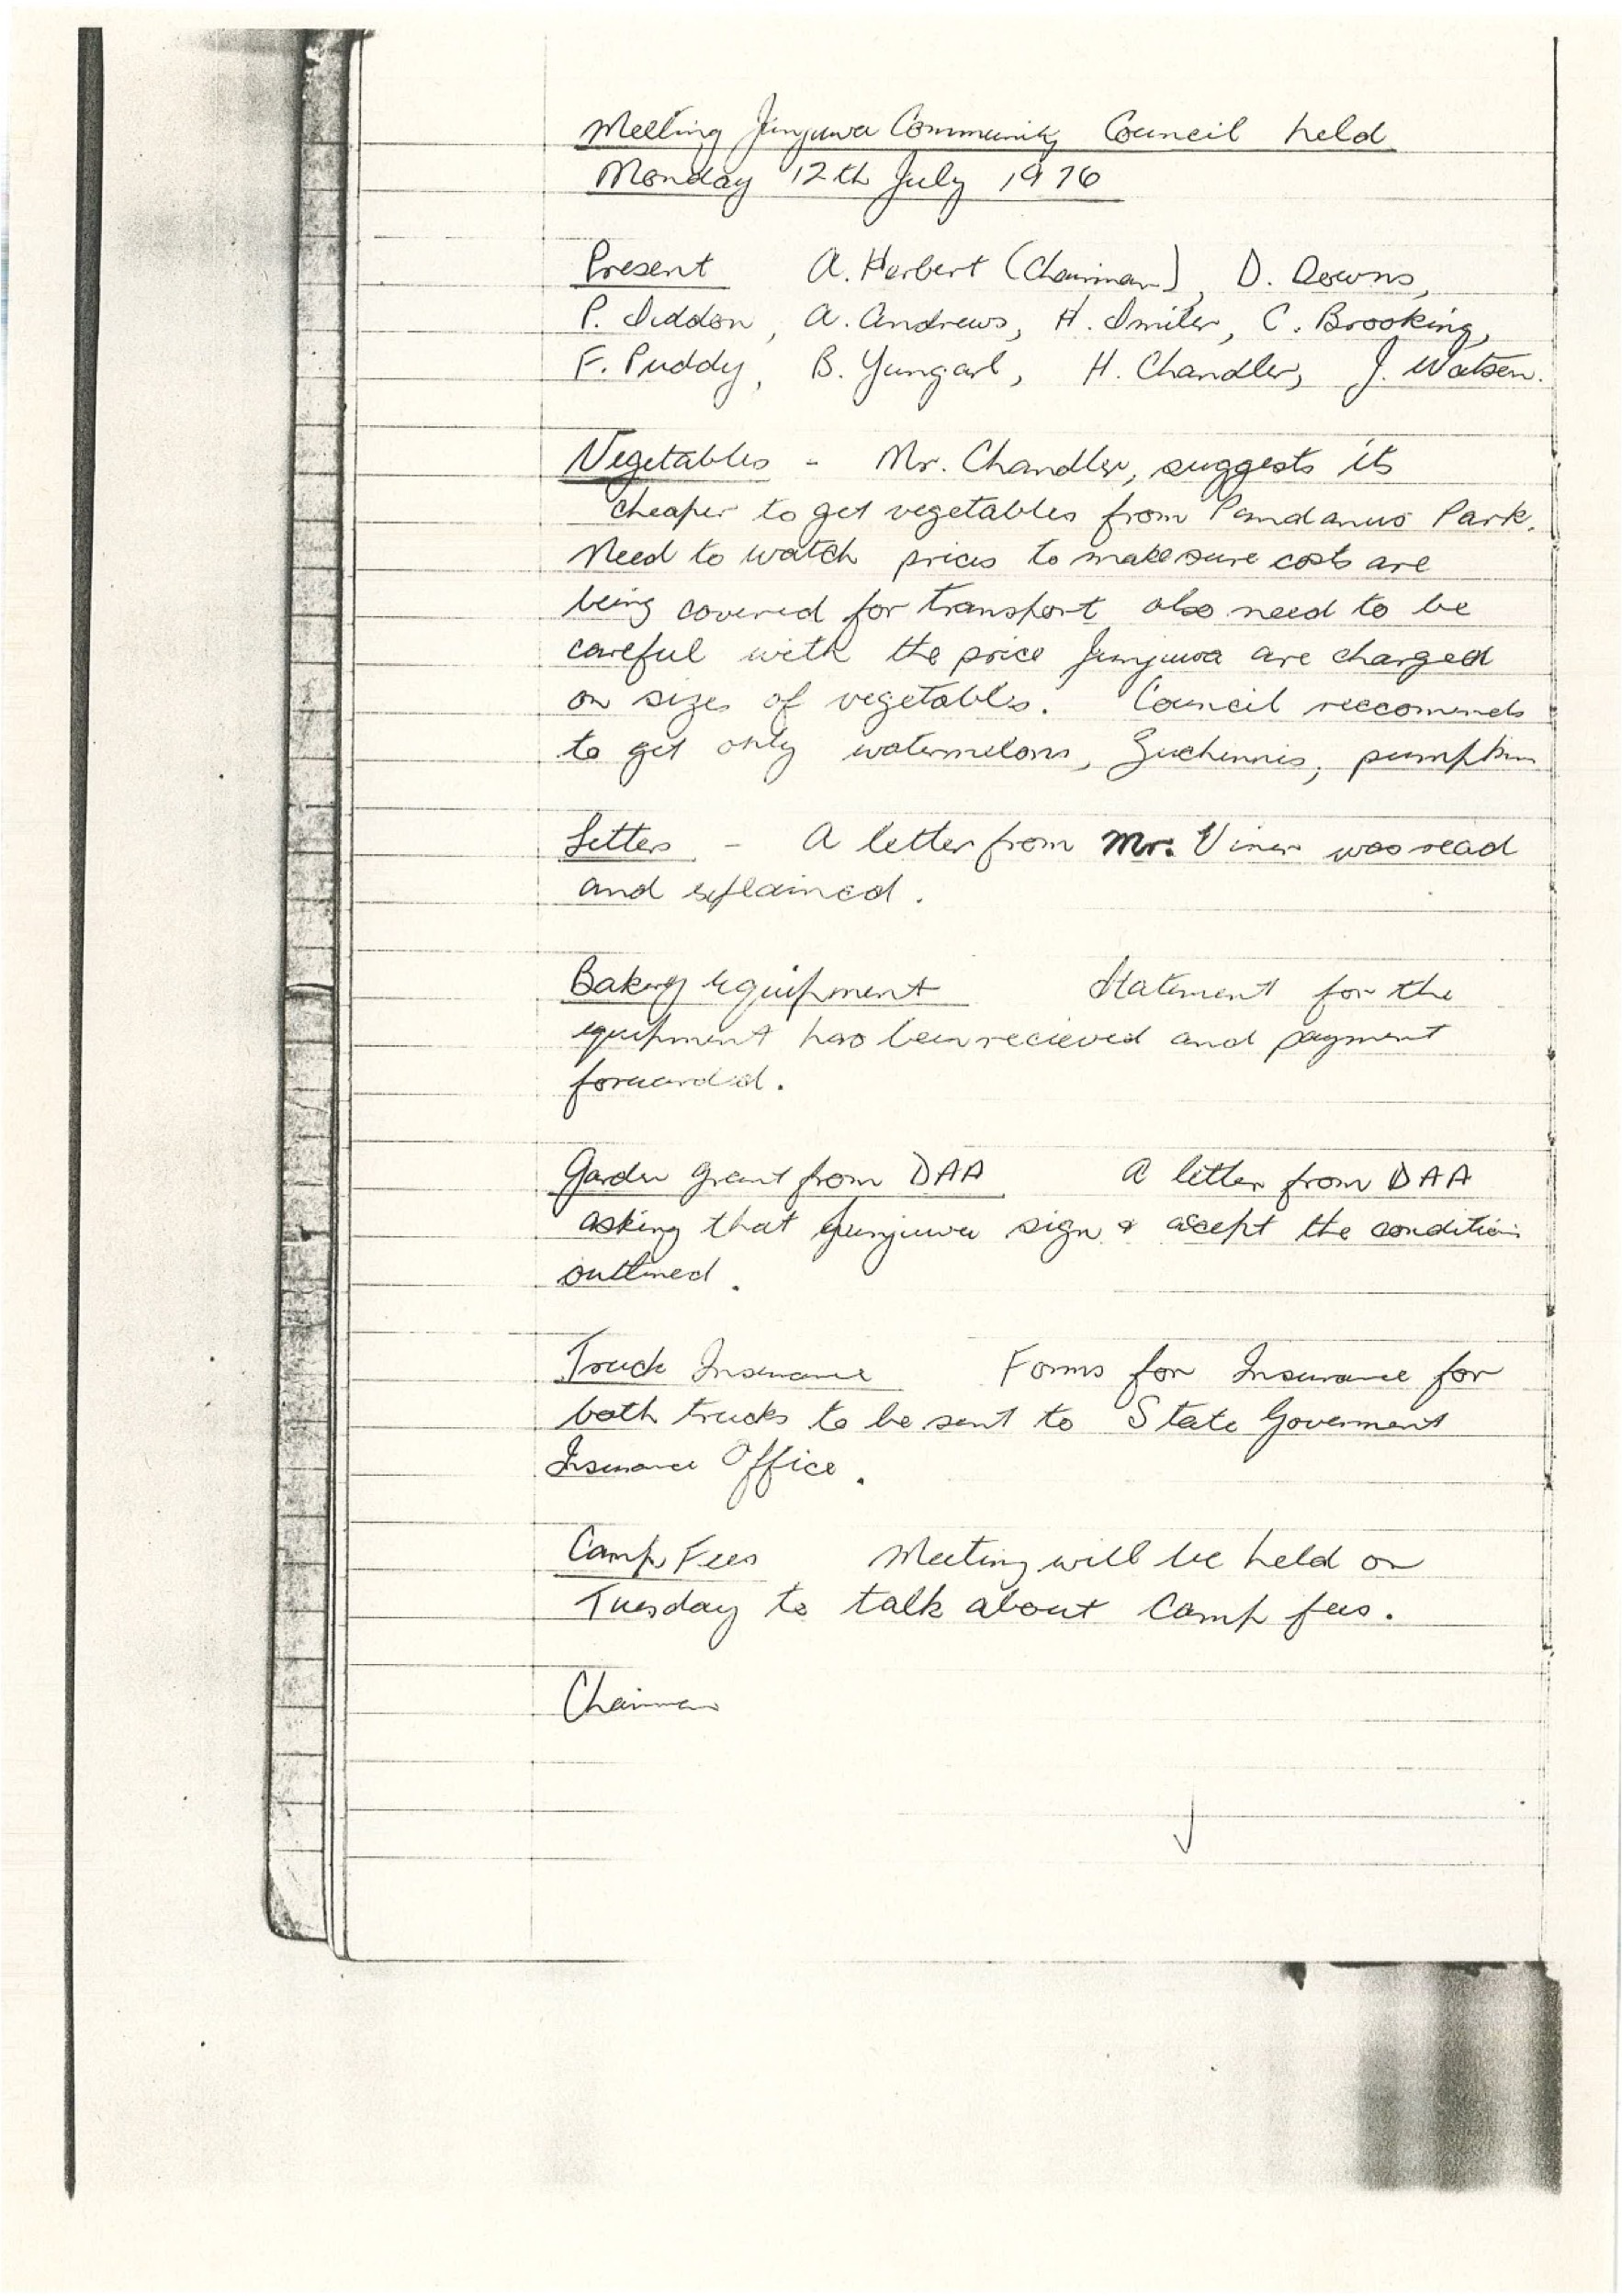 Meeting Junjuwa Community Council held
Monday 12th July 1976
Present A. Herbert (Chairman), D. Downs,
P. Siddon, A. Andrews, H. Smiler, C. Brooking,
F. Puddy, B. Yungarl, H. Chandler, J. Watson.
Vegetables - Mr. Chandler, suggests its
cheaper to get vegetables from Pandanus Park.
Need to watch prices to make sure costs are
being covered for transport also need to be
careful with the price Junjuwa are charged
on sizes of vegetables. Council reccomends
to get only watermelons, Zuchinnis, pumpkin
Letters - A letter from Mr. Viner was read
and explained.
Bakery equipment Statement for the
equipment has been recieved and payment
forwarded.
Garden grant from DAA A letter from DAA
asking that Junjuwa sign & accept the conditions
outlined.
Truck Insurance Forms for Insurance for
both trucks to be sent to State Goverment
Insurance Office.
Camp Fees Meeting will be held on
Tuesday to talk about Camp fees.
Chairman